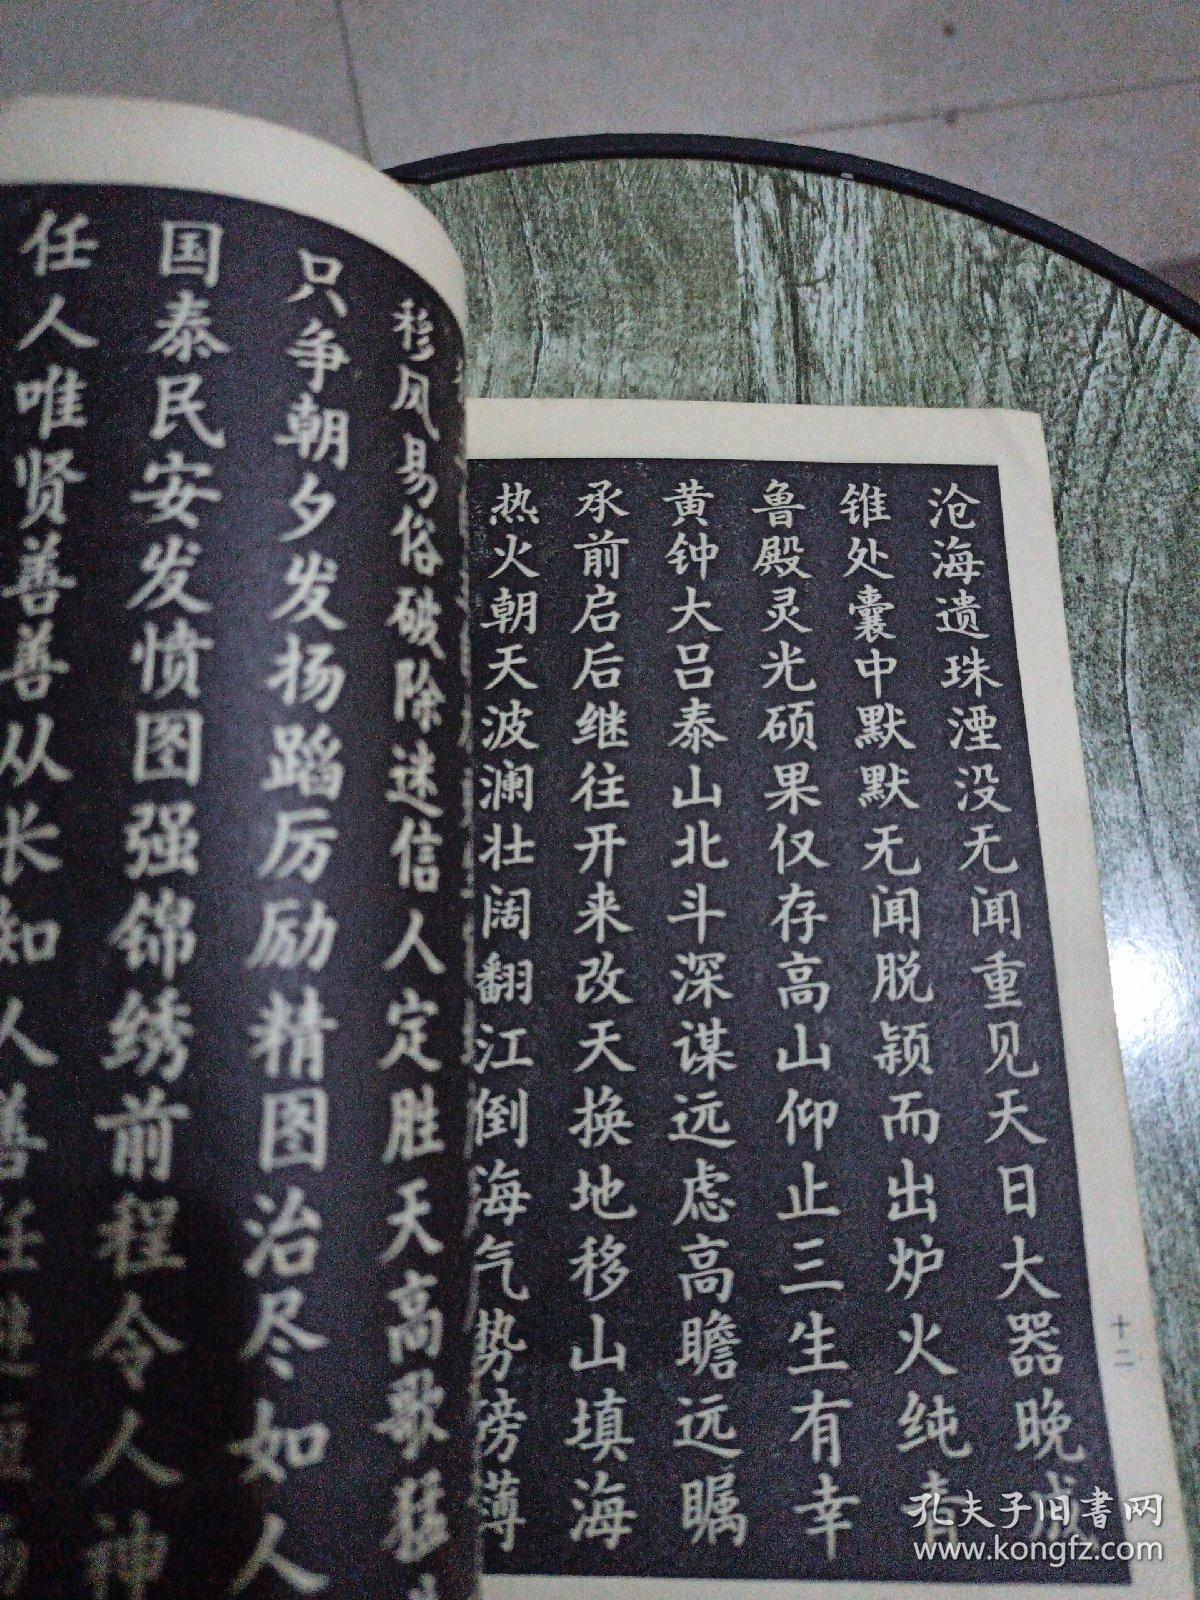 沧海遗珠湮没无闻重见天日大器晚成
锥处囊中默默无闻脱颖而出炉火纯青
鲁殿灵光硕果仅存高山仰止三生有幸
黄钟大吕泰山北斗深谋远虑高瞻远瞩
承前启后继往开来改天换地移山填海
热火朝天波澜壮阔翻江倒海气势滂薄
十二
移风易俗破除迷信人定胜天高歌猛
只争朝夕发扬蹈厉励精图治尽如人
国泰民安发愤图强锦绣前程令人神
任人唯贤善善从长知人善任
孔夫子旧书网
www.kongfz.com